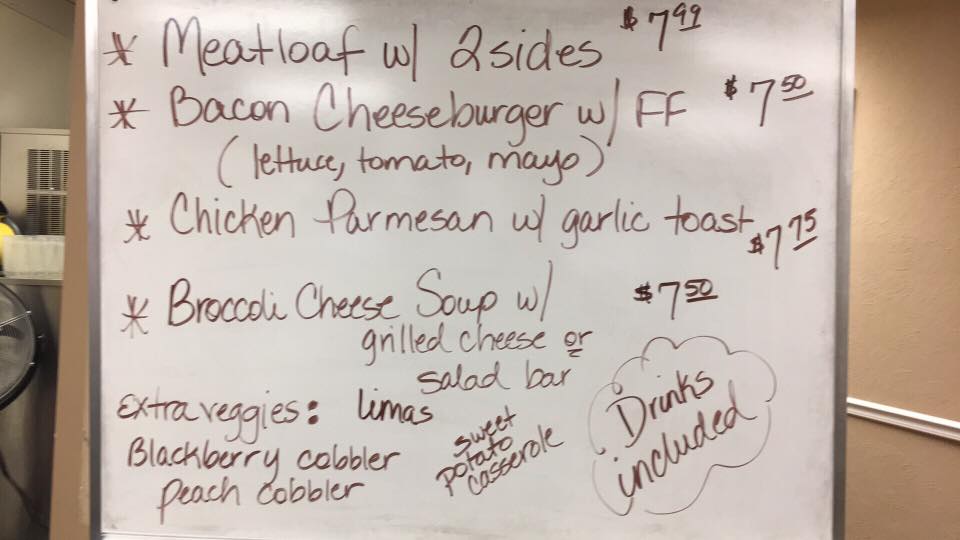 * Meatloaf w/ 2 sides $7.99
* Bacon Cheeseburger w/ FF $7.50
(lettuce, tomato, mayo)
* Chicken Parmesan w/ garlic toast $7.75
* Broccoli Cheese Soup w/ $7.50
grilled cheese or
salad bar
Extra veggies: limas
sweet
potato
casserole
Blackberry cobbler
Peach cobbler
Drinks
included